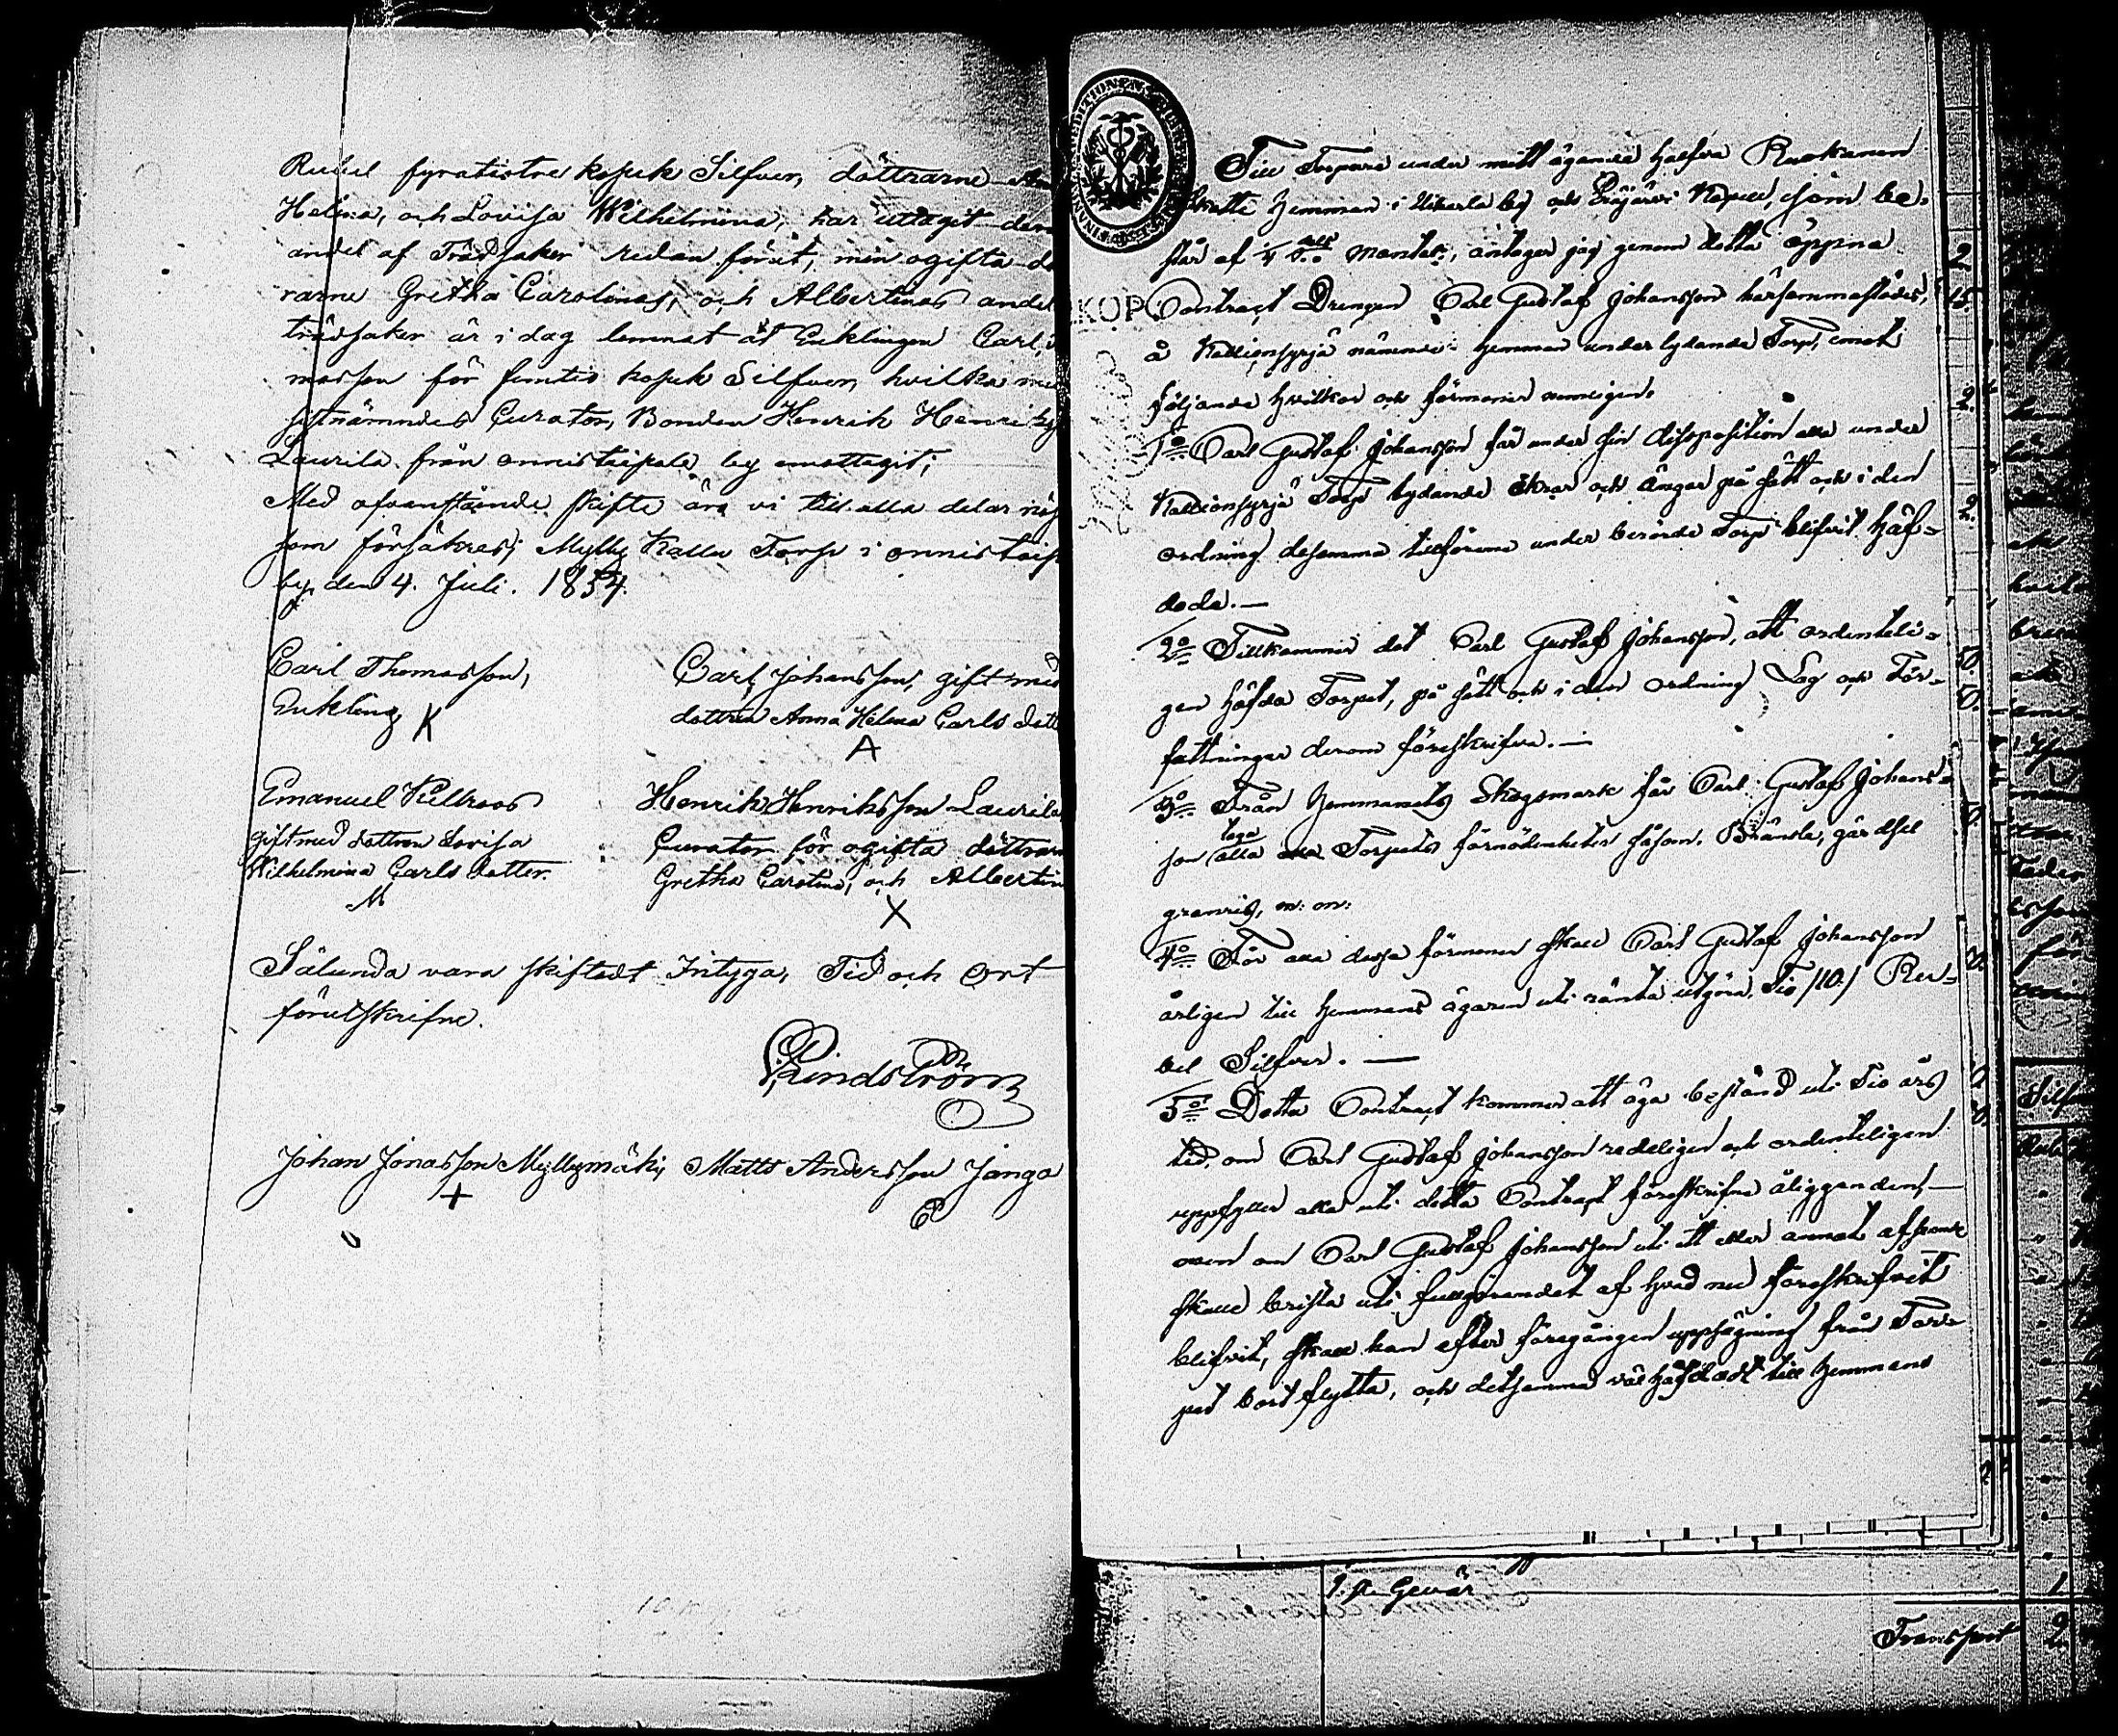 Rubel fyratiotre kopek Silfver, döttrarne
Helena, och Lovisa Wilhelmina, har uttagit
andel af Trädsaker redan förut, min ogifta
rarne Gretha Carolinas, och Albertinas andel
trädsaker är i dag lemnat åt Enklingen Carl,
masson för femtio kopek Silfver, hvilka
sistnämndes Curator, Bonden Henrik Henriks
Laurila från Onnistaipale by emottagit;
Med ofvanstående skifte äro vi till alla delar nöj
som försäkres; Mylly Kallu Torp i Onnistaip
by den 4. Juli. 1854.
Carl Thomasson, Carl Johansson, gift med
Enkling dottren Anna Helena Carls dott
Emanuel Henrik Henriksson Laurila
gift med dottren Lovisa Curator för ogifta döttrarn
Wilhelmina Carls dotter. Gretha Carolina, och Albertin
Sålunda vara skiftadt Intyga, Tid och Ort
förutskrifne.
Lindström
Johan Jonasson Myllymäki, Matts Andersson Janga
Till Torpare under mitt ägande halfva Ruokanen
Skatte Hemman i by och Kapell, som be-
står af 1/4 mantal, antager jag genom detta öppna
Contract Drengen Carl Gustaf Johansson härsammastädes,
å Kallionsyrjä nämnde hemman underlydande Torp, emot
följande hvilkor och förmoner nemligen.
1o Carl Gustaf Johansson får under sin disposition alla under
Kallionsyrjä Torp lydande åkrar och ängar på sätt och i den
ordning desamma tillförene under berörde Torp blifvit häf-
dade. —
2o Tillkommer det Carl Gustaf Johansson, att ordenteli-
gen häfda Torpet, på sätt och i den ordning Lag och För-
fattningar derom föreskrifva. —
3o Från Hemmanets Skogsmark får Carl Gustaf Johans-
son taga alla Torpets förnödenheter såsom. Bränsle, gärdsel
granris, m: m:
4o För alla dessa förmoner skall Carl Gustaf Johansson
årligen till Hemmans ägaren uti ränta utgöra, Tio /10./ Ru-
bel Silfver. —
5o Detta Contract kommer att äga bestånd uti Tio års
tid, om Carl Gustaf Johansson redeligen och ordenteligen
uppfyller alla uti detta Contract föreskrifne åligganden, —
men om Carl Gustaf Johansson uti ett eller annat afseende
skall brista uti fullgörandet af hvad nu föreskrifvit
blifvit, skall han efter föregången uppsägning från Tor-
pet bort flytta, och detsamma väl häfdadt till Hemmans
1. st. Gevär
Transport 2